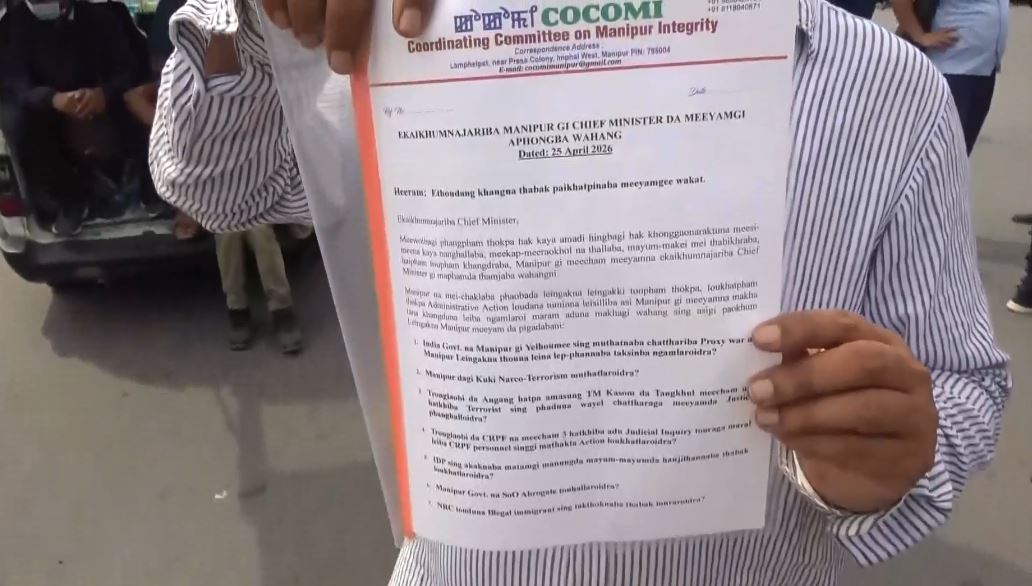 COCOMI
Coordinating Committee on Manipur Integrity
Correspondence Address :
Lamphelpat, near Press Colony, Imphal West, Manipur PIN: 795004
E-mail: cocomimanipur@gmail.com
Date
EKAIKHUMNAJARIBA MANIPUR GI CHIEF MINISTER DA MEEYAMGI
APHONGBA WAHANG
Dated: 25 April 2026
Heeram: Ethoudang khangna thabak paikhatpinaba meeyamgee wakat.
Ekaikhumnajariba Chief Minister,
Meewothagi phangpham thokpa hak kaya amadi hingbagi hak khonggaonaraktuna meesi-
meena kaya nanghallaba, meekap-meeraokhol na thallaba, mayum-makei mei thabikhraba,
laipham khangdraba, Manipur gi meecham meeyamna ekaikhumnajariba Chief
Minister gi maphamda thamjaba wahangni
Manipur na mei-chaklaba phaobada leingakna leingakki toupham thokpa, loukhatpham
thokpa Administrative Action loudana tuminna leisilliba asi Manipur gi meeyamna makha
tana khangduna leiba ngamlaroi maram aduna makhagi wahang sing asigi paokhum
Leingakna Manipur meeyam da pigadabani:
1. India Govt. na Manipur gi Yelhoumee sing muthatnaba chatthariba Proxy war
Manipur Leingakna thouna leina lep-phannaba taksinba ngamlaroidra?
2. Manipur dagi Kuki Narco-Terrorism muthatlaroidra?
3. Tronglaobi da Angang hatpa amasung TM Kasom da Tangkhul meecham
hatkhiba Terrorist sing phaduna wayel chattharaga meeyamda
phanghalloidra?
4. Tronglaobi da CRPF na meecham 3 hatkhiba adu Judicial Inquiry touraga maral
leiba CRPF personnel singgi mathakta Action loukhatlaroidra?
5. IDP sing akaknaba matamgi manungda mayam-mayumda hanjilhannaba thabak
loukhatlaroidra?
6. Manipur Govt. na SoO Abrogate touhallaroidra?
7. NRC louduna Illegal immigrant sing takthoknaba thabak